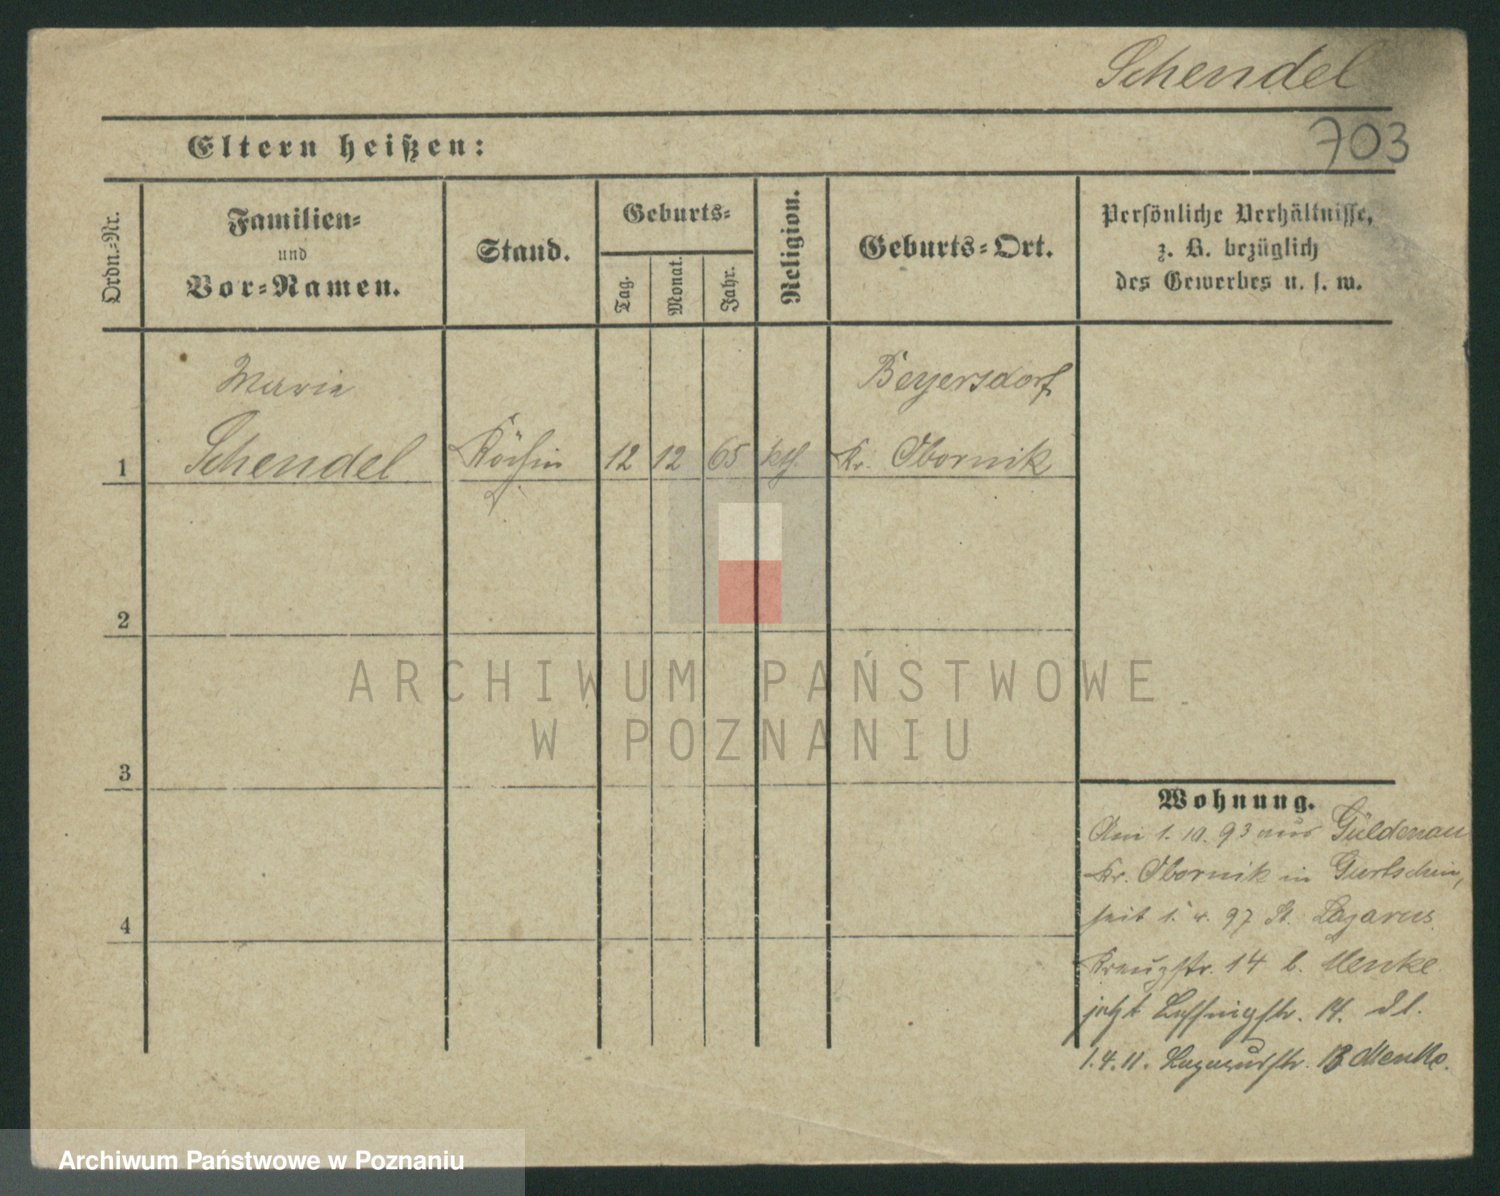 Schendel
703
Eltern heißen:
Ordn.-Nr.
Familien-
und
Vor-Namen.
Stand.
Geburts-
Tag.
Monat.
Jahr.
Religion.
Geburts-Ort.
Persönliche Verhältnisse,
z. B. bezüglich
des Gewerbes u. s. w.
Marie
Beyersdorf
1 Schendel Köchin 12 12 65 kth. Kr. Obornik
2
3
4
Wohnung.
Am 1. 10. 93 aus Güldenau
Kr. Obornik in Gurtschin,
seit 1. 4. 97 St. Lazarus
Kreuzstr. 14 b. Menke
jetzt 14.
1.4.11. Lazarusstr. 13 Menke.
ARCHIWUM PAŃSTWOWE
W POZNANIU
Archiwum Państwowe w Poznaniu